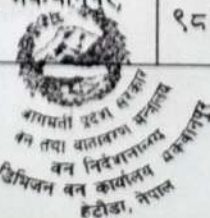 ९८
बागमती प्रदेश सरकार
वन तथा वातावरण मन्त्रालय
वन निर्देशनालय
डिभिजन वन कार्यालय मकवानपुर
हेटौंडा, नेपाल